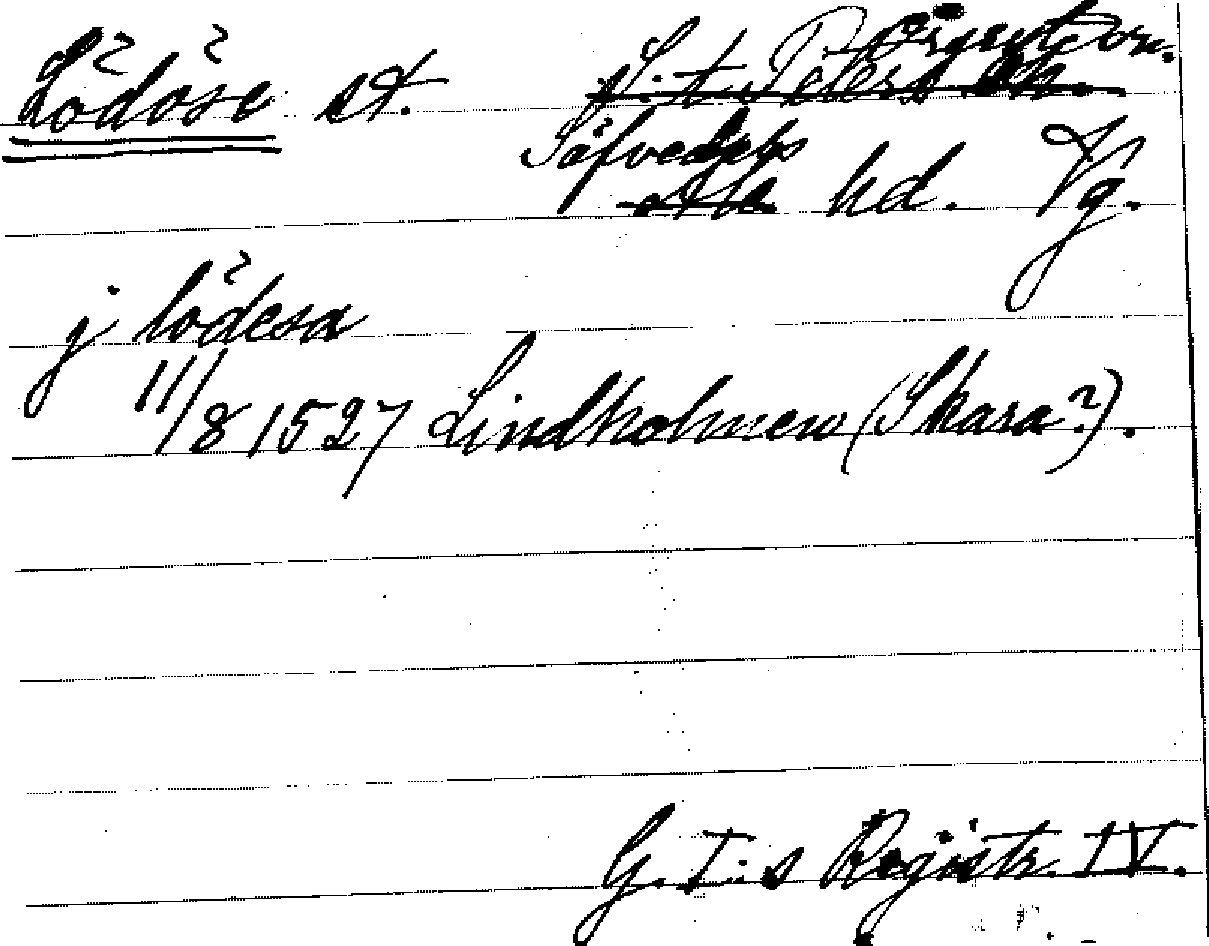 Lödöse st. S:t Peters sn.
Säfvedals Ale hd. Vg.
j lödesa
11/8 1527 Lindholmen (Skara?).
G. I:s Registr. IV.